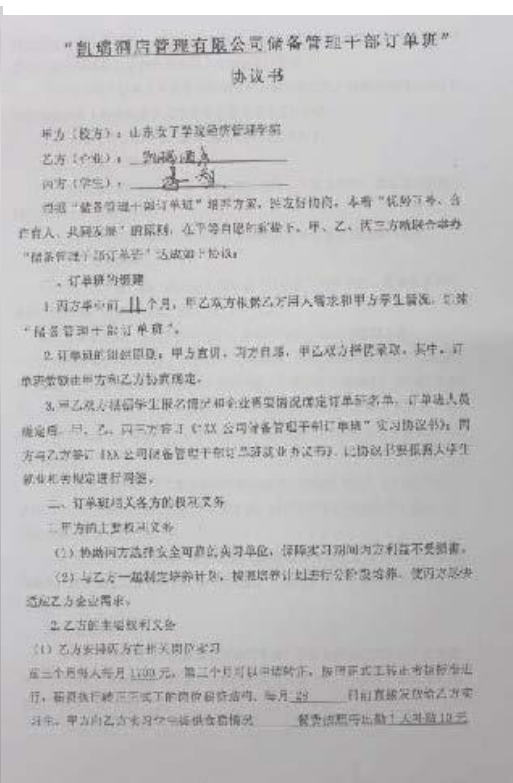 “凯瑞酒店管理有限公司储备管理干部订单班”
协议书
甲方（校方）：山东女子学院经济管理学院
乙方（企业）：凯瑞酒店
丙方（学生）：
根据“储备管理干部订单班”培养方案，经友好协商，本着“优势互补、合
作育人、共同发展”的原则，在平等自愿的前提下，甲、乙、丙三方就联合举办
“储备管理干部订单班”达成如下协议：
一、订单班的组建
1.丙方毕业前 11 个月，甲乙双方根据乙方用人需求和甲方学生情况，组建
“储备管理干部订单班”。
2.订单班的组织原则：甲方宣讲，丙方自愿，甲乙双方择优录取。其中，订
单班数额由甲方和乙方协商确定。
3.甲乙双方根据学生报名情况和企业需要情况确定订单班名单，订单班人员
确定后，甲、乙、丙三方签订《“XX 公司储备管理干部订单班”实习协议书》；丙
方与乙方签订《XX 公司储备管理干部订单班就业协议书》，此协议书要根据大学生
就业相关规定进行
二、订单班相关各方的权利义务
1.甲方的主要权利义务
（1）协助丙方选择安全可靠的实习单位，保障实习期间丙方利益不受损害。
（2）与乙方一起制定培养计划，按照培养计划进行分阶段培养，使丙方尽快
适应乙方企业需求。
2.乙方的主要权利义务
（1）乙方安排丙方在相关岗位实习
前三个月每人每月 1700 元，第三个月可以申请转正，按照正式工转正考核标准进
行，薪资执行转正正式工的岗位薪资结构。每月 28 日前直接发放给乙方实
习生。甲方向乙方实习学生提供食宿情况 餐费按照每出勤 1 天补助 10 元